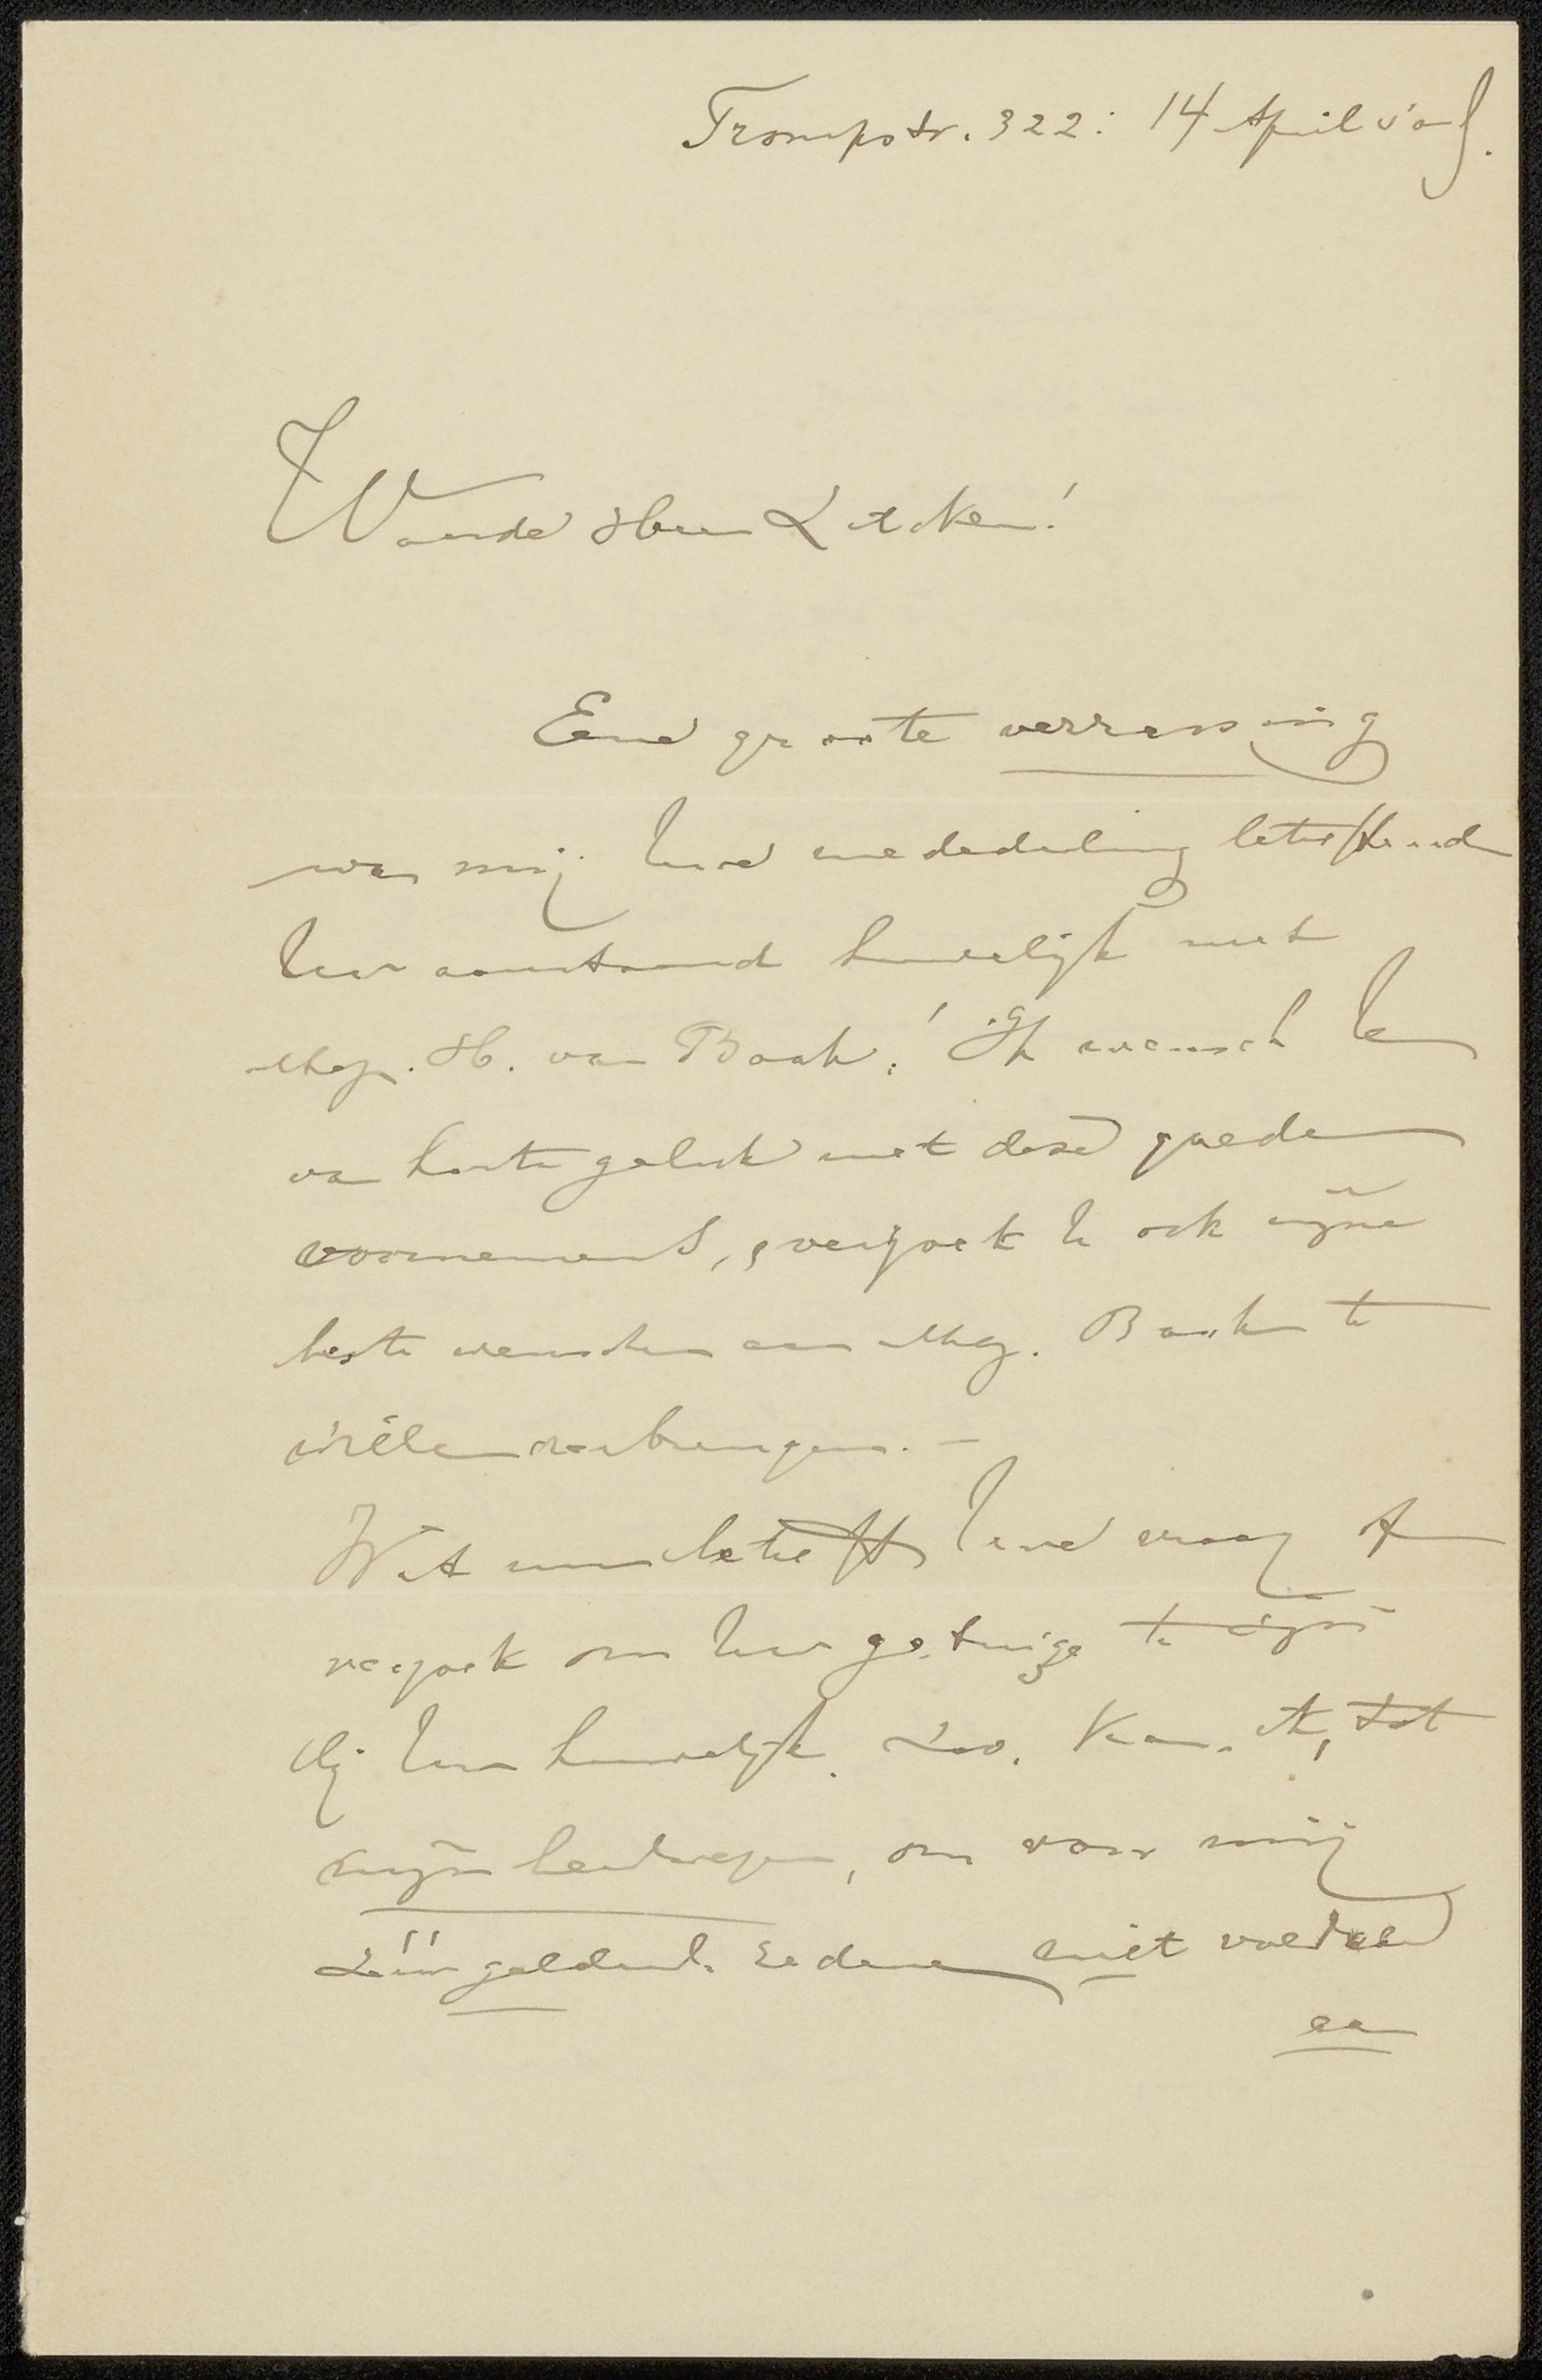 Trompstr. 322: 14 April
Waarde Heer Zilcken!
Eene groote verrassing
was mij Uwe mededeeling betreffend
Uw aanstaand huwelijk met
Mej. H. van Baak! Ik wensch U
van harte geluk met deze goede
voornemens, verzoek U ook mijne
beste wenschen aan Mej. Baak te
willen overbrengen. —
Wat nu betreft Uwe vraag of
verzoek om Uw getuige te zijn
bij Uw huwelijk. Zoo kan ik, tot
mijn leedwezen, om voor mij
zéér geldende redenen niet voldoen
aan